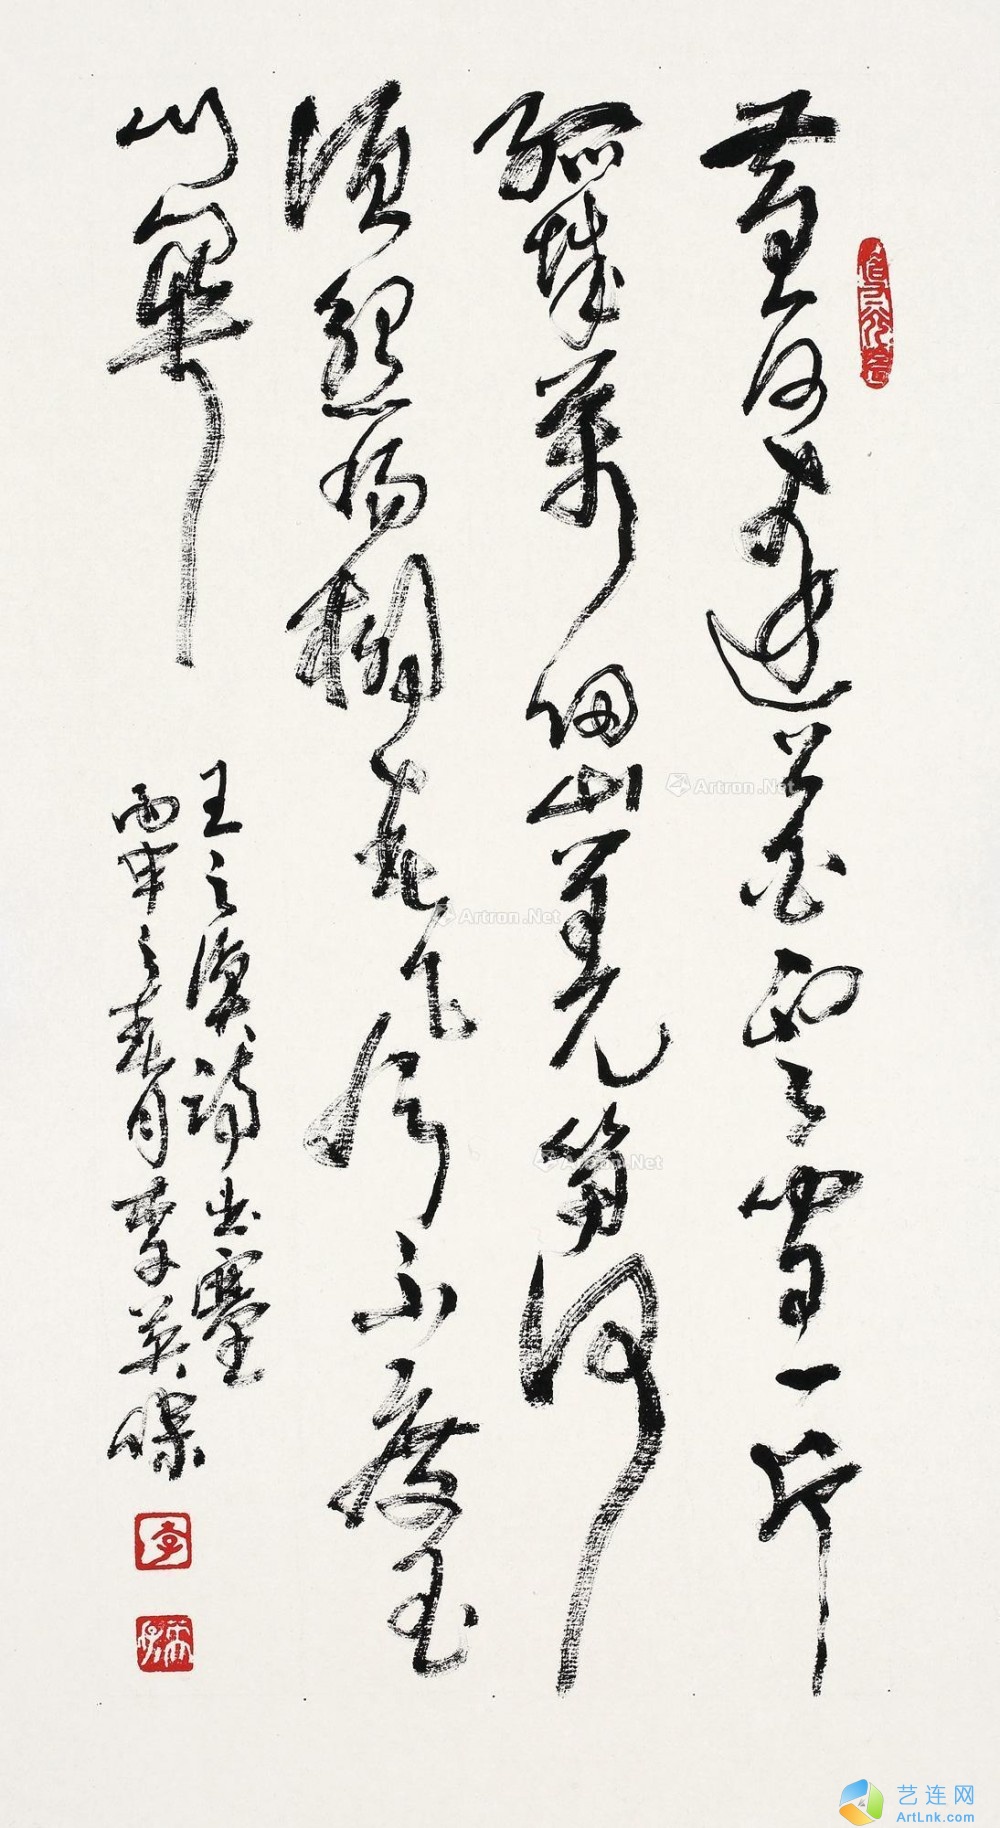 黄河遠上白雲間一片
孤城萬仞山羌笛何
須怨楊柳春風不度玉
門關
王之渙詩出塞
丙申之春月李英
李
Artron.Net
Artron.Net
Artron.Net
艺连网
ArtLnk.com